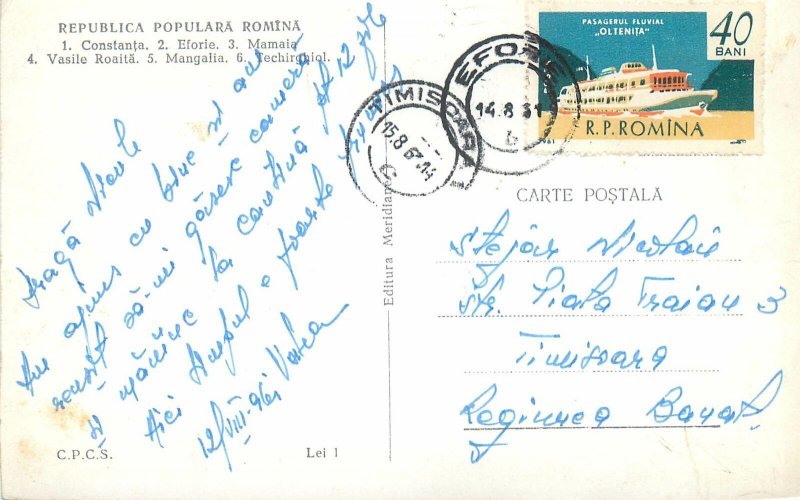 REPUBLICA POPULARĂ ROMÎNĂ
1. Constanța. 2. Eforie. 3. Mamaia
4. Vasile Roaită. 5. Mangalia. 6. Techirghiol.
Dragă Nicule
Am ajuns cu bine și am
reușit să-mi găsesc cameră
și mănînc la cantină
Aici timpul e foarte frumos
12/VIII-961
C.P.C.S.
Lei 1
Editura Meridiane
TIMIȘOARA
15.8.61
EFORIE
14.8.61
PASAGERUL FLUVIAL
„OLTENIȚA”
40
BANI
R.P.ROMÎNA
CARTE POȘTALĂ
Stejar Nicolae
Str. Piata Traian 3
Timisoara
Regiunea Banat